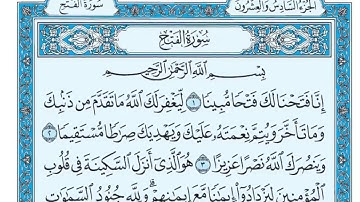 الجزء السادس والعشرون سورة الفتح
سُورَةُ الفَتْحِ
بِسْمِ اللَّهِ الرَّحْمَٰنِ الرَّحِيمِ
إِنَّا فَتَحْنَا لَكَ فَتْحًا مُبِينًا ١ لِيَغْفِرَ لَكَ اللَّهُ مَا تَقَدَّمَ مِن ذَنبِكَ
وَمَا تَأَخَّرَ وَيُتِمَّ نِعْمَتَهُ عَلَيْكَ وَيَهْدِيَكَ صِرَاطًا مُّسْتَقِيمًا ٢
وَيَنصُرَكَ اللَّهُ نَصْرًا عَزِيزًا ٣ هُوَ الَّذِي أَنزَلَ السَّكِينَةَ فِي قُلُوبِ
الْمُؤْمِنِينَ لِيَزْدَادُوا إِيمَانًا مَّعَ إِيمَانِهِمْ وَلِلَّهِ جُنُودُ السَّمَاوَاتِ